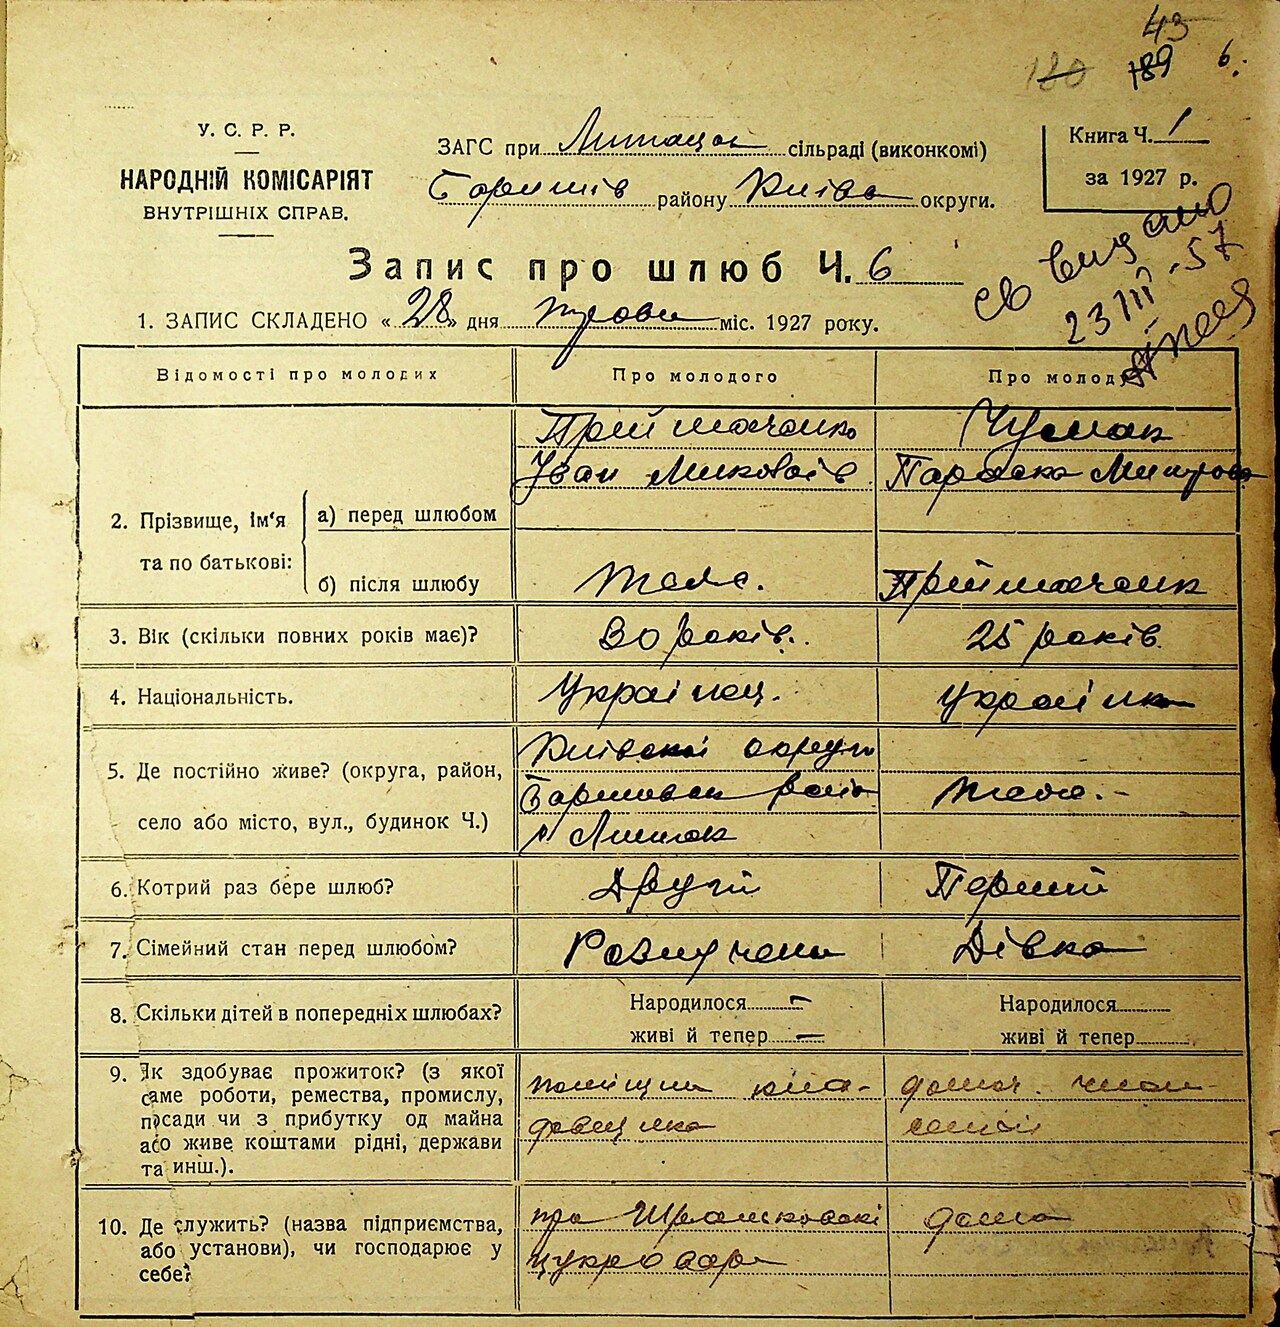 43
180 189 6.
У. С. Р. Р.
НАРОДНІЙ КОМІСАРІЯТ
ВНУТРІШНІХ СПРАВ.
ЗАГС при сільраді (виконкомі)
Баришів району Київс округи.
Книга Ч. 1
за 1927 р.
Запис про шлюб Ч. 6
св видано
23 III -57
1. ЗАПИС СКЛАДЕНО « 28 » дня травн міс. 1927 року.
Відомості про молодих Про молодого Про молоду
2. Прізвище, ім'я та по батькові:
а) перед шлюбом
Приймаченко
Іван Миколаїв
Чумак
Параска Митров
б) після шлюбу
теж. Приймаченк
3. Вік (скільки повних років має)? 30 років. 25 років.
4. Національність. Українец. Українк
5. Де постійно живе? (округа, район,
село або місто, вул., будинок Ч.)
Київскої округи
Баришовск рай
теж.-
6. Котрий раз бере шлюб? Другий Перший
7. Сімейний стан перед шлюбом? Розлучени Дівка
8. Скільки дітей в попередніх шлюбах?
Народилося –
живі й тепер –
Народилося
живі й тепер
9. Як здобуває прожиток? (з якої
саме роботи, ремества, промислу,
посади чи з прибутку од майна
або живе коштами рідні, держави
та инш.).
10. Де служить? (назва підприємства,
або установи), чи господарює у
себе?
при
цукровар
дома